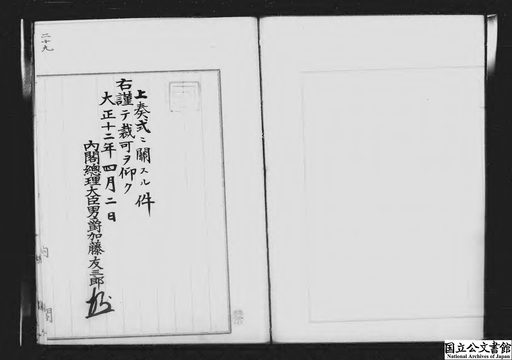 二十九
上奏式ニ關スル件
右謹テ裁可ヲ仰ク
大正十二年四月二日
内閣總理大臣男爵加藤友三郎
内閣
国立公文書館
National Archives of Japan